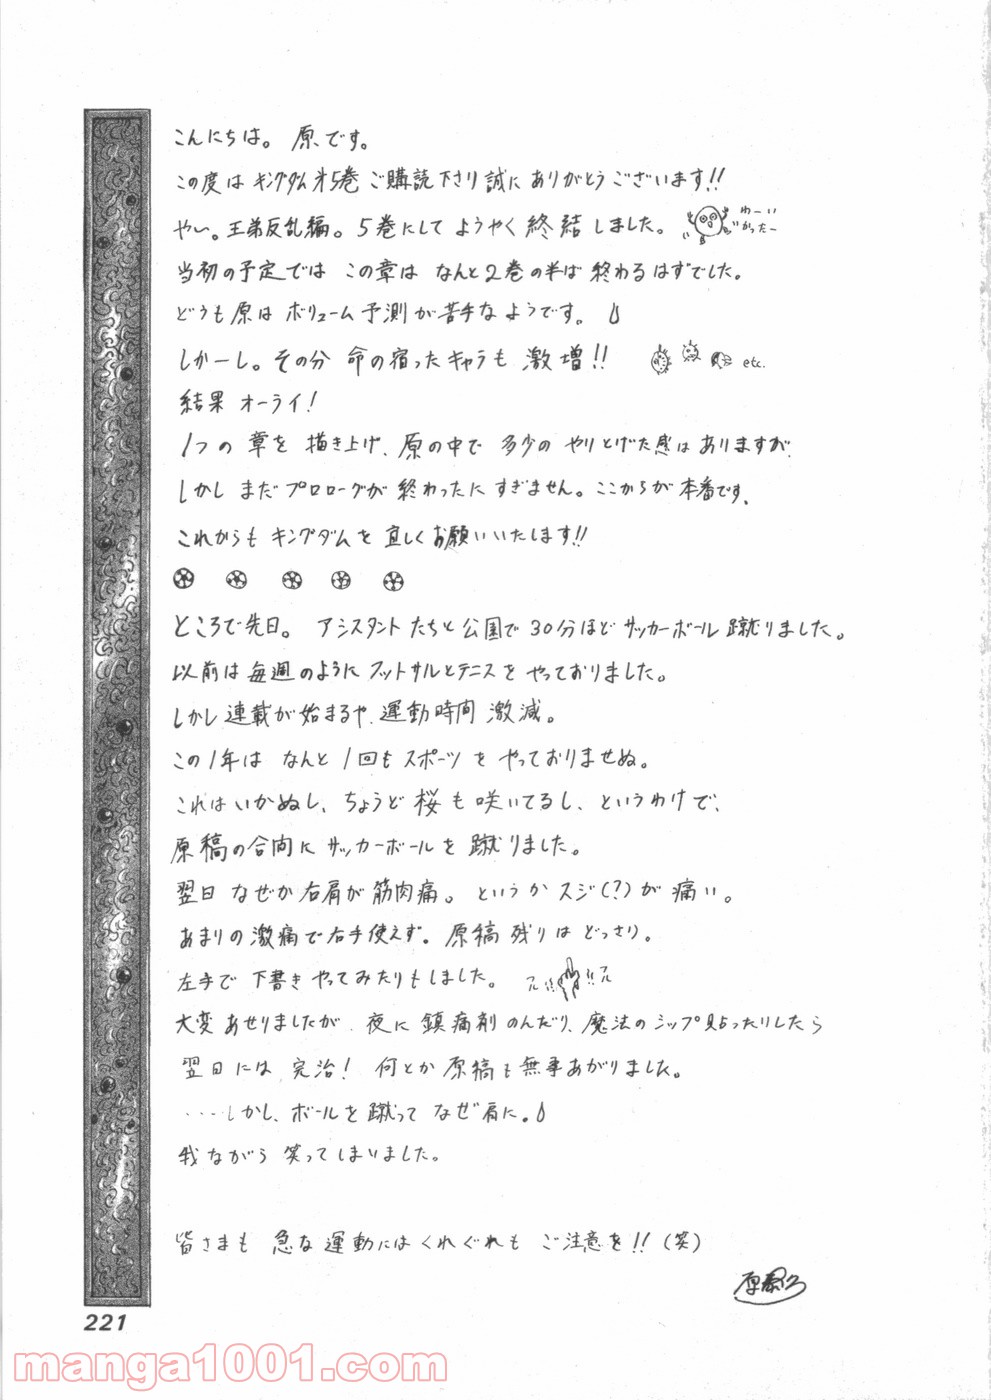 こんにちは。 原です。
この度は キングダム第5巻 ご購読下さり誠に ありがとうございます!!
やい。王弟反乱編。5巻にして ようやく 終結しました。 わーい
かったー
当初の予定では この章は なんと2巻の半ば 終わるはずでした。
どうも原は ボリューム予測が苦手なようです。
しかーし。その分 命の宿ったキャラも 激増!! etc.
結果 オーライ!
1つの 章を 描き上げ、原の中で 多少の やりとげた感は ありますが、
しかし まだ プロローグが 終わったに すぎません。ここからが 本番です。
これからも キングダムを 宜しく お願いいたします!!
ところで先日。 アシスタントたちと 公園で 30分ほど サッカーボール 蹴りました。
以前は 毎週のように フットサルとテニスを やっておりました。
しかし 連載が始まるや、運動時間 激減。
この1年は なんと 1回もスポーツを やっておりませぬ。
これはいかぬし、ちょうど 桜も 咲いてるし、というわけで、
原稿の合間に サッカーボールを 蹴りました。
翌日 なぜか右肩が筋肉痛。 というか スジ(?)が 痛い。
あまりの激痛で右手使えず。原稿残りは どっさり。
左手で 下書き やってみたりもしました。
大変 あせりましたが、夜に 鎮痛剤のんだり、魔法のシップ貼ったりしたら
翌日には 完治! 何とか 原稿も 無事あがりました。
‥‥しかし、ボールを 蹴って なぜ肩に。
我ながら 笑ってしまいました。
皆さまも 急な運動には くれぐれも ご注意を!!(笑)
原泰久
221
manga1001.com